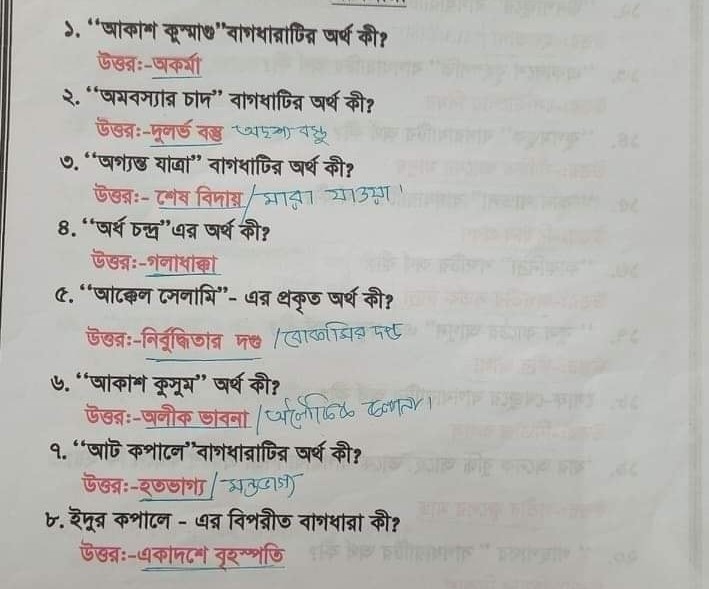 ১. “আকাশ কুষ্মাণ্ড”বাগধারাটির অর্থ কী?
উত্তর:-অকর্মা
২. “অমাবস্যার চাদ” বাগধাটির অর্থ কী?
উত্তর:-দুলর্ভ বস্তু অদৃশ্য বস্তু
৩. “অগ্যস্ত যাত্রা” বাগধাটির অর্থ কী?
উত্তর:- শেষ বিদায়/মারা যাওয়া।
৪. “অর্ধ চন্দ্র”এর অর্থ কী?
উত্তর:-গলাধাক্কা
৫. “আক্কেল সেলামি”- এর প্রকৃত অর্থ কী?
উত্তর:-নির্বুদ্ধিতার দণ্ড /বোকামির দণ্ড
৬. “আকাশ কুসুম” অর্থ কী?
উত্তর:-অলীক ভাবনা/অলৌকিক কল্পনা।
৭. “আট কপালে”বাগধারাটির অর্থ কী?
উত্তর:-হতভাগ্য/মন্দভাগ্য
৮. ইদুর কপালে - এর বিপরীত বাগধারা কী?
উত্তর:-একাদশে বৃহস্পতি